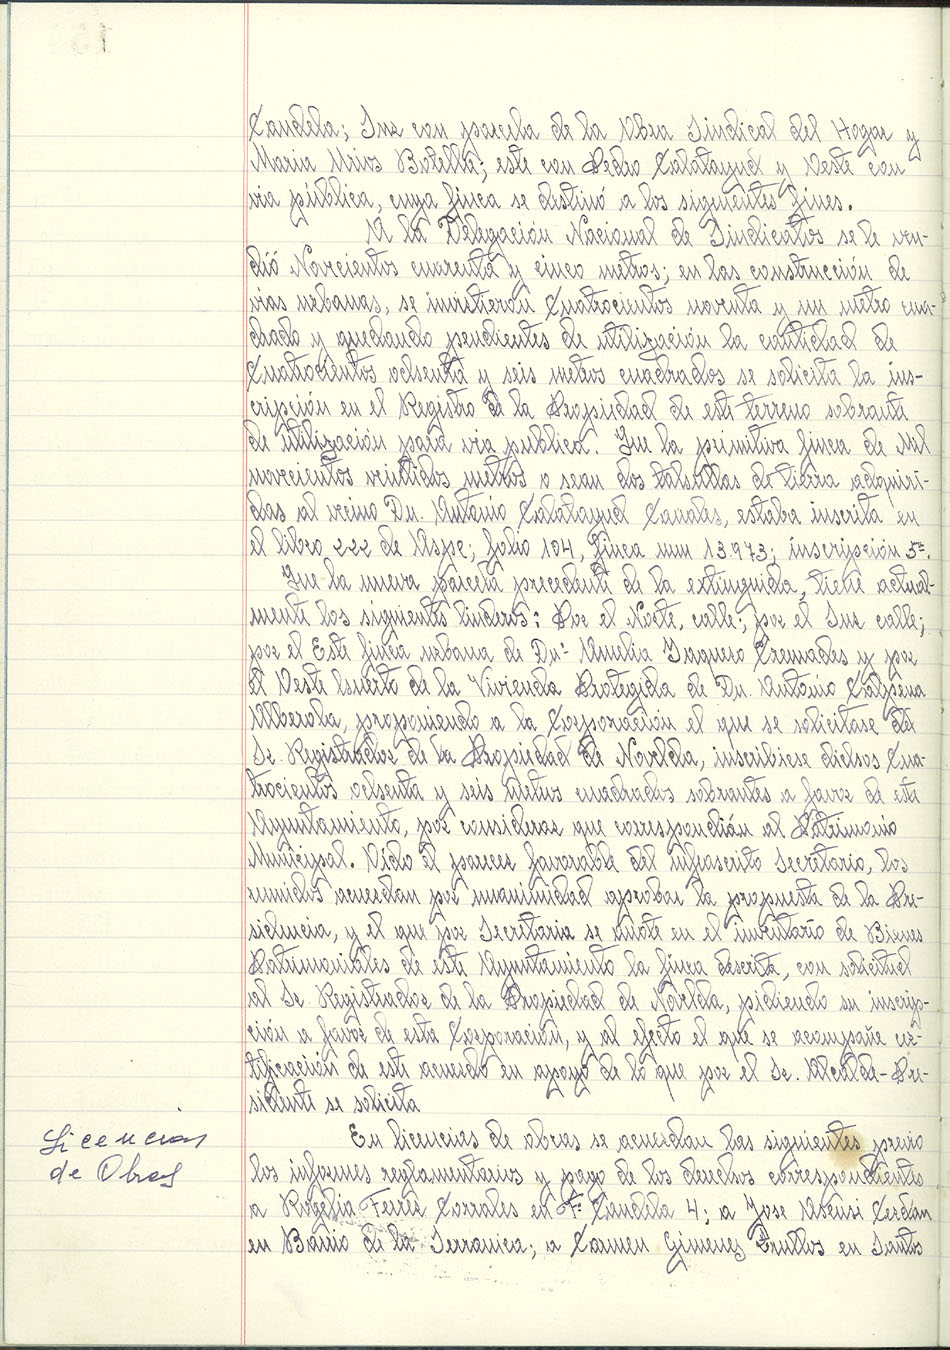 Candela; Sur con parcela de la Obra Sindical del Hogar y
Maria Mira Botella; este con Pedro Calatayud y Oeste con
via pública, cuya finca se destinó a los siguientes fines.
A la Delegación Nacional de Sindicatos se le ven-
dió Novecientos cuarenta y cinco metros; en las construcción de
vias urbanas, se invirtieron Cuatrocientos noventa y un metro cua-
drado y quedando pendientes de utilización la cantidad de
Cuatrocientos ochenta y seis metros cuadrados se solicita la ins-
cripción en el Registro de la Propiedad de este terreno sobrante
de utilización para via publica. Que la primitiva finca de Mil
novecientos veintidos metros o sean dos tahullas de tierra adquiri-
das al vecino Dn. Antonio Calatayud Canales, estaba inscrita en
el libro 222 de Aspe; folio 104, finca num 13.973; inscripción 5ª.
Que la nueva parcela precedente de la extinguida, tiene actual-
mente los siguientes linderos: Por el Norte, calle; por el Sur calle;
por el Este finca urbana de Dnª Amelia Cremades y por
el Oeste huerto de la Vivienda Protegida de Dn. Antonio Calpena
Alberola, proponiendo a la Corporación el que se solicitase del
Sr. Registrador de la Propiedad de Novelda, inscribiese dichos Cua-
trocientos ochenta y seis metros cuadrados sobrantes a favor de este
Ayuntamiento, por considerar que correspondián al Patrimonio
Municipal. Oido el parecer favorable del infrascrito Secretario, los
reunidos acuerdan por unanimidad aprobar la propuesta de la Pre-
sidencia, y el que por Secretaria se anote en el inventario de Bienes
Patrimoniales de este Ayuntamiento la finca descrita, con solicitud
al Sr. Registrador de la Propiedad de Novelda, pidiendo su inscrip-
ción a favor de esta Corporación, y al efecto el que se acompañe cer-
tificación de este acuerdo en apoyo de lo que por el Sr. Alcalde-Pre-
sidente se solicita
Licencias
de Obras
En licencias de obras se acuerdan las siguientes previo
los informes reglamentarios y pago de los derechos correspondientes
a Rogelia Corrales en Fº Candela 4; a Jose Asensi Cerdan
en Barrio de la Serranica; a Carmen Gimenez en Santos